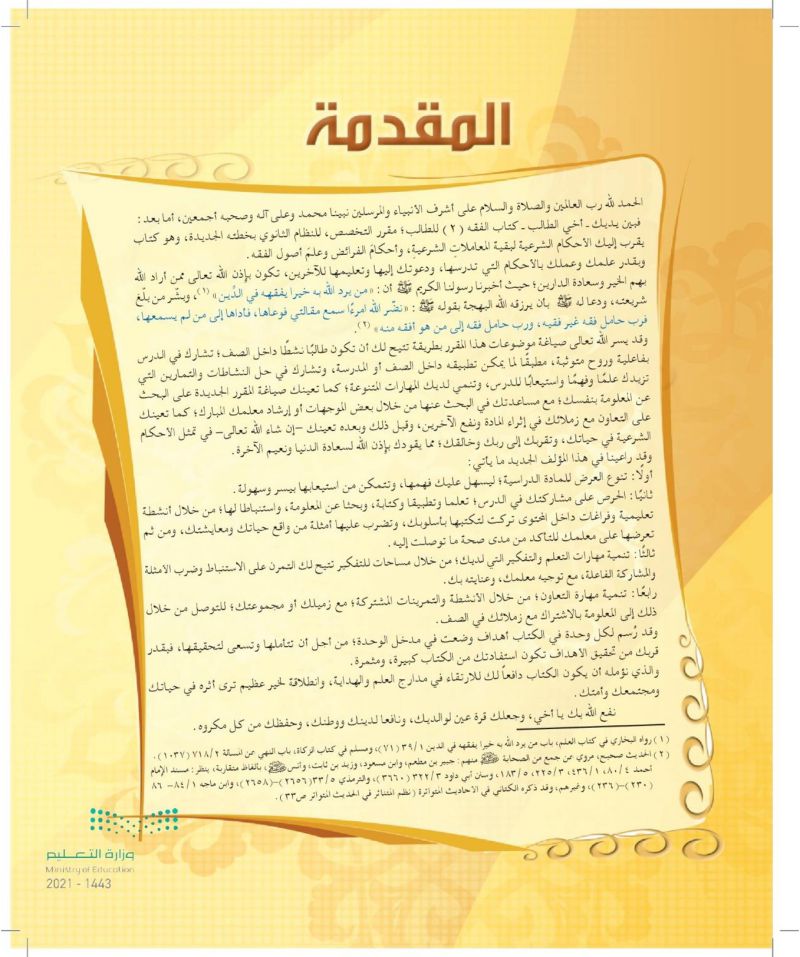 المقدمة
الحمد لله رب العالمين والصلاة والسلام على أشرف الأنبياء والمرسلين نبينا محمد وعلى آله وصحبه أجمعين، أما بعد :
فبين يديك - أخي الطالب - كتاب الفقه (٢) للطالب؛ مقرر التخصص، للنظام الثانوي بخطته الجديدة، وهو كتاب
يقرب إليك الأحكام الشرعية لبقية المعاملات الشرعية، وأحكام الفرائض وعلم أصول الفقه .
وبقدر علمك وعملك بالأحكام التي تدرسها، ودعوتك إليها وتعليمها للآخرين، تكون بإذن الله تعالى ممن أراد الله
بهم الخير وسعادة الدارين؛ حيث أخبرنا رسولنا الكريم ﷺ أن : «من يرد الله به خيرا يفقهه في الدِّين» (١)، وبشّر من بلّغ
شريعته، ودعا له ﷺ بأن يرزقه الله البهجة بقوله ﷺ : «نضّر الله امرءًا سمع مقالتي فوعاها، فأداها إلى من لم يسمعها،
فرب حامل فقه غير فقيه، ورب حامل فقه إلى من هو أفقه منه» (٢).
وقد يسر الله تعالى صياغة موضوعات هذا المقرر بطريقة تتيح لك أن تكون طالبًا نشطًا داخل الصف؛ تشارك في الدرس
بفاعلية وروح متوثبة، مطبقًا لما يمكن تطبيقه داخل الصف أو المدرسة، وتشارك في حل النشاطات والتمارين التي
تزيدك علمًا وفهمًا واستيعابًا للدرس، وتنمي لديك المهارات المتنوعة؛ كما تعينك صياغة المقرر الجديدة على البحث
عن المعلومة بنفسك؛ مع مساعدتك في البحث عنها من خلال بعض الموجهات أو إرشاد معلمك المبارك؛ كما تعينك
على التعاون مع زملائك في إثراء المادة ونفع الآخرين، وقبل ذلك وبعده تعينك -إن شاء الله تعالى- في تمثل الأحكام
الشرعية في حياتك، وتقربك إلى ربك وخالقك؛ مما يقودك بإذن الله لسعادة الدنيا ونعيم الآخرة.
وقد راعينا في هذا المؤلف الجديد ما يأتي:
أولًا: تنوع العرض للمادة الدراسية؛ ليسهل عليك فهمها، وتتمكن من استيعابها بيسر وسهولة .
ثانيًا: الحرص على مشاركتك في الدرس؛ تعلما وتطبيقا وكتابة، وبحثا عن المعلومة، واستنباطا لها؛ من خلال أنشطة
تعليمية وفراغات داخل المحتوى تركت لتكتبها بأسلوبك، وتضرب عليها أمثلة من واقع حياتك ومعايشتك، ومن ثم
تعرضها على معلمك للتأكد من مدى صحة ما توصلت إليه.
ثالثًا: تنمية مهارات التعلم والتفكير التي لديك؛ من خلال مساحات للتفكير تتيح لك التمرن على الاستنباط وضرب الأمثلة
والمشاركة الفاعلة، مع توجيه معلمك، وعنايته بك.
رابعًا: تنمية مهارة التعاون؛ من خلال الأنشطة والتمرينات المشتركة؛ مع زميلك أو مجموعتك؛ للتوصل من خلال
ذلك إلى المعلومة بالاشتراك مع زملائك في الصف.
وقد رُسم لكل وحدة في الكتاب أهداف وضعت في مدخل الوحدة؛ من أجل أن تتأملها وتسعى لتحقيقها، فبقدر
قربك من تحقيق الأهداف تكون استفادتك من الكتاب كبيرة، ومثمرة.
والذي نؤمله أن يكون الكتاب دافعاً لك للارتقاء في مدارج العلم والهداية، وانطلاقة لخير عظيم ترى أثره في حياتك
ومجتمعك وأمتك .
نفع الله بك يا أخي، وجعلك قرة عين لوالديك، ونافعا لدينك ووطنك، وحفظك من كل مكروه.
(١) رواه البخاري في كتاب العلم، باب من يرد الله به خيرا يفقهه في الدين ٣٩/١ (٧١)، ومسلم في كتاب الزكاة، باب النهي عن المسألة ٧١٨/٢ (١٠٣٧).
(٢) الحديث صحيح، مروي عن جمع من الصحابة ﷺ منهم: جبير بن مطعم، وابن مسعود، وزيد بن ثابت، وأنس ﷺ، بألفاظ متقاربة، ينظر: مسند الإمام
أحمد ٨٠/٤، ٤٣٦/١، ٢٢٥/٣، ١٨٣/٥، وسنن أبي داود ٣٢٢/٣ (٣٦٦٠)، والترمذي ٣٣/٥ (٢٦٥٦)–(٢٦٥٨)، وابن ماجه ٨٤/١– ٨٦
(٢٣٠)–(٢٣٦)، وغيرهم، وقد ذكره الكتاني في الأحاديث المتواترة (نظم المتناثر في الحديث المتواتر ص٣٣).
وزارة التعليم
Ministry of Education
2021 - 1443